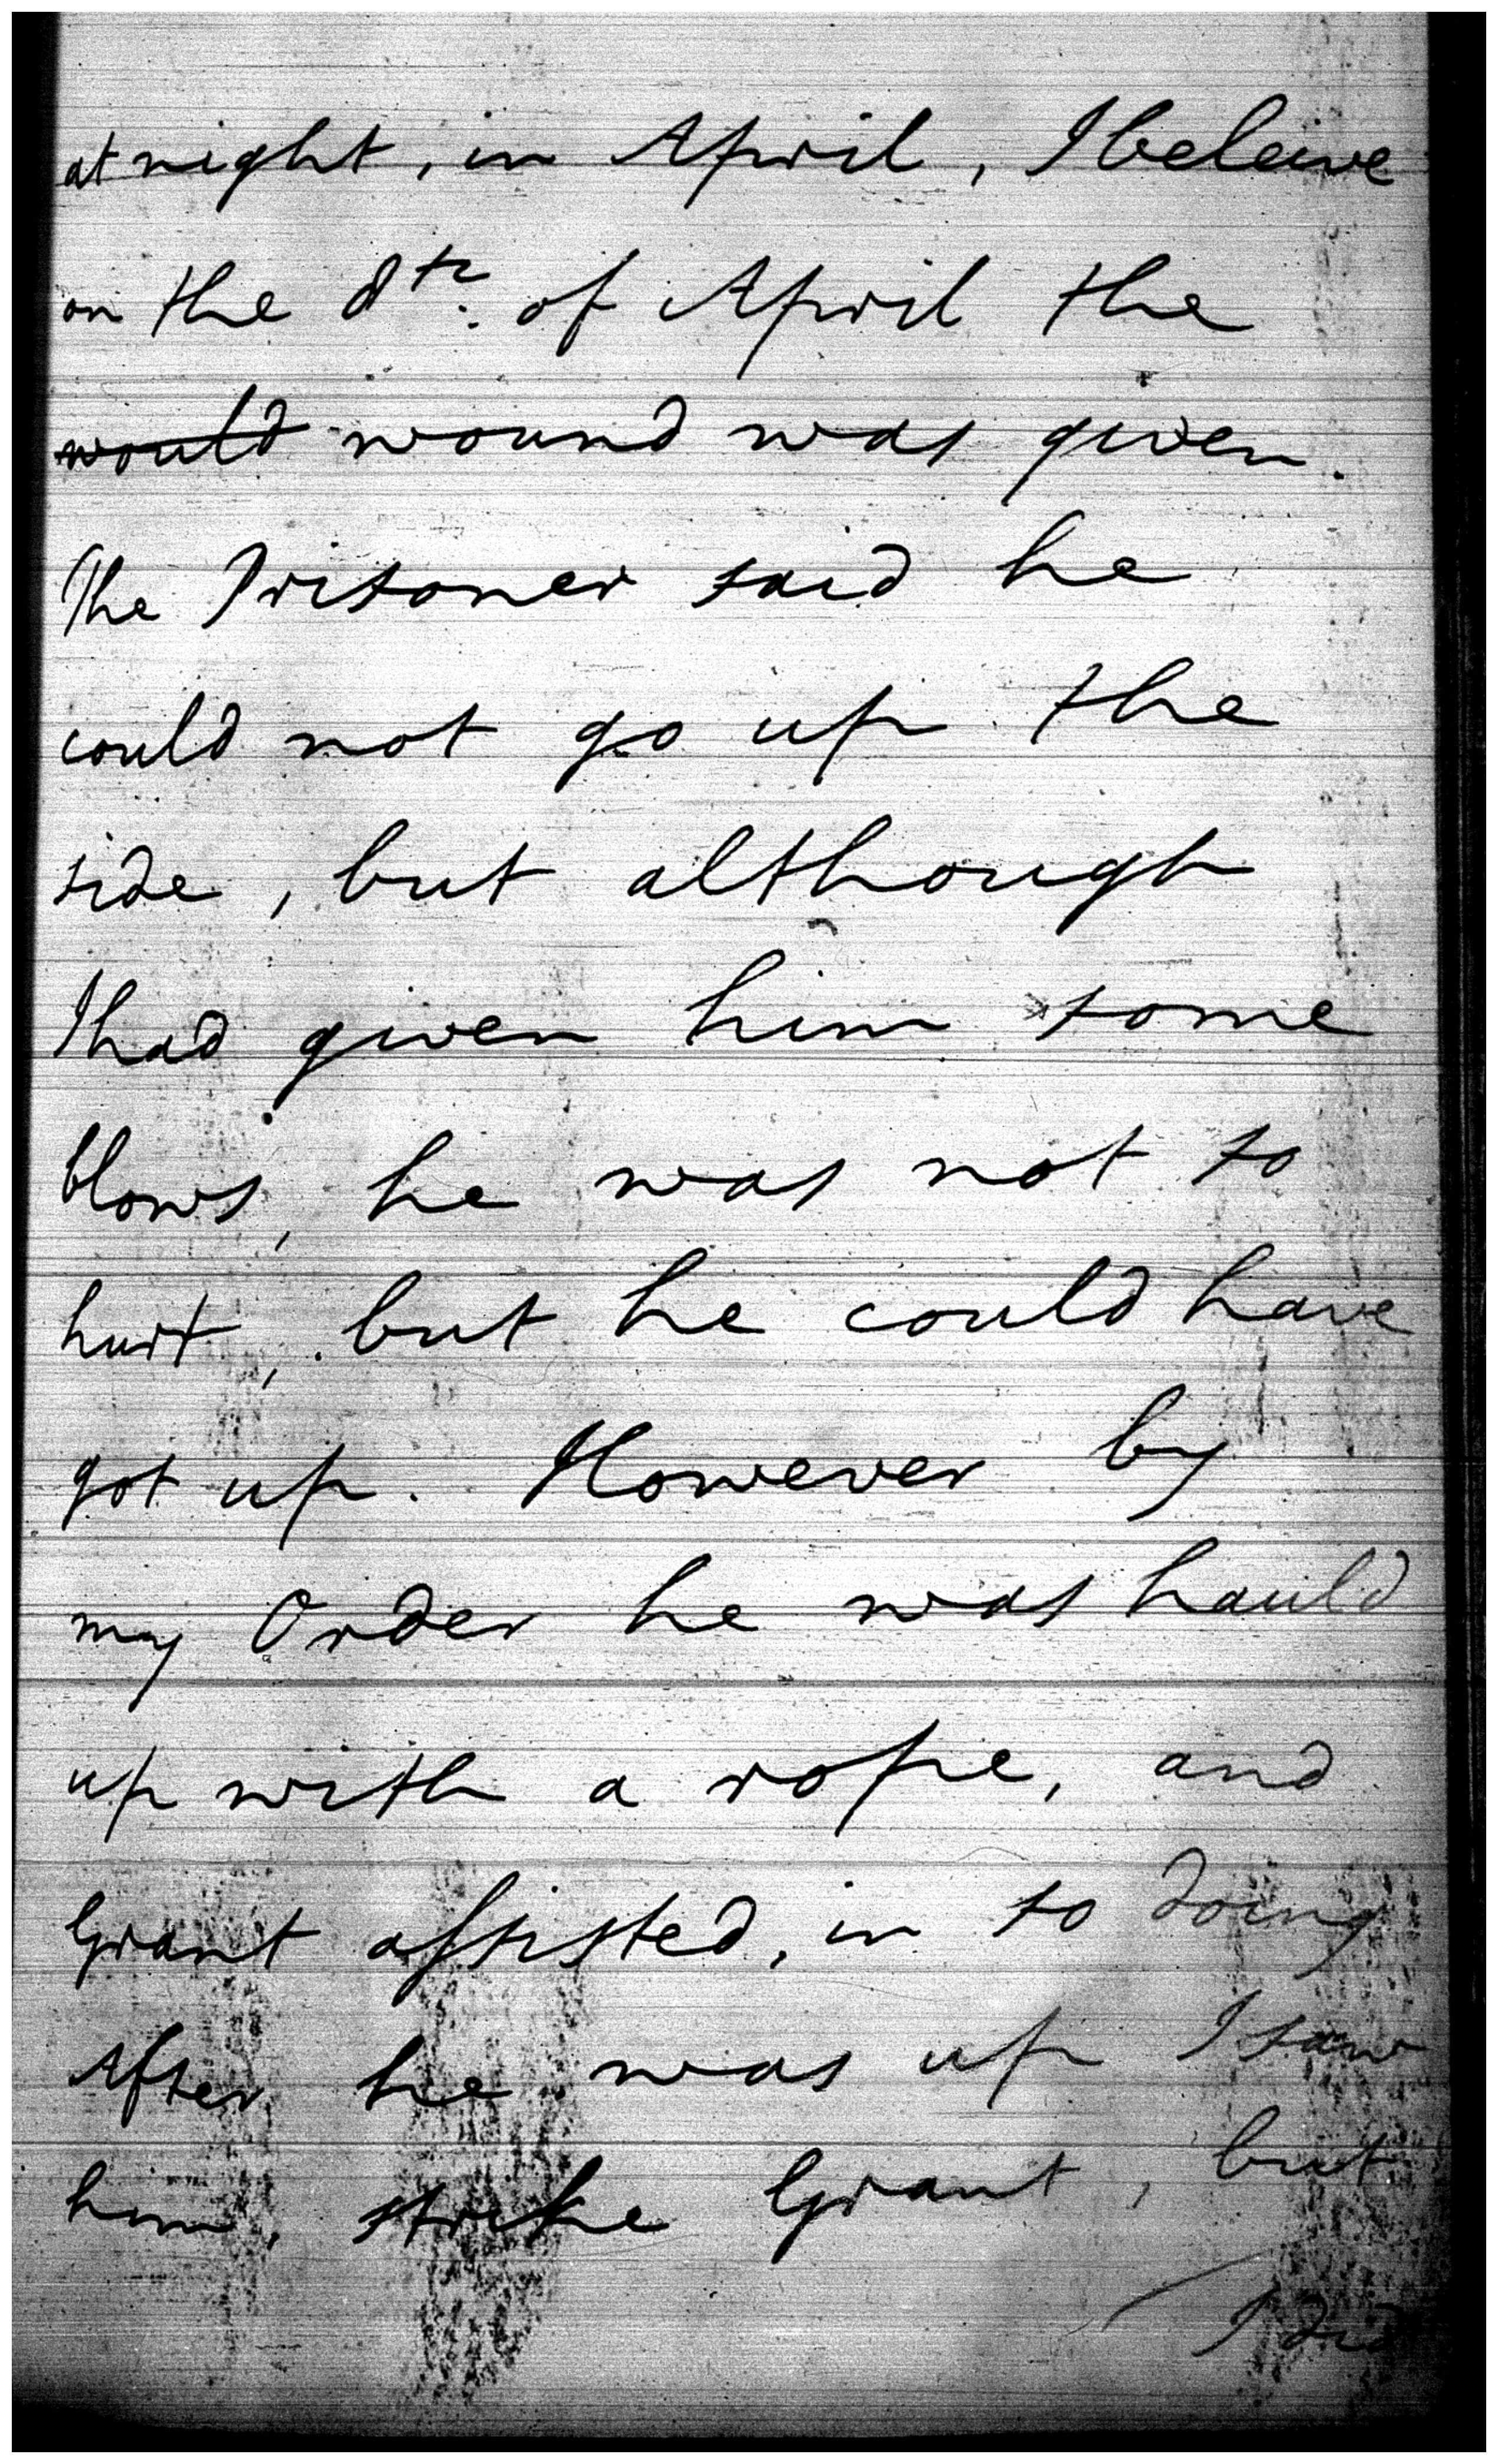 at night, in April, I beleive
on the 8th. of April the
would wound was given.
The Prisoner said he
could not go up the
side, but although
I had given him some
blows, he was not so
hurt, but he could have
got up. However by
my Order he was hauld
up with a rope, and
Grant assisted, in so doing
After he was up I saw
him, strike Grant, but
I did